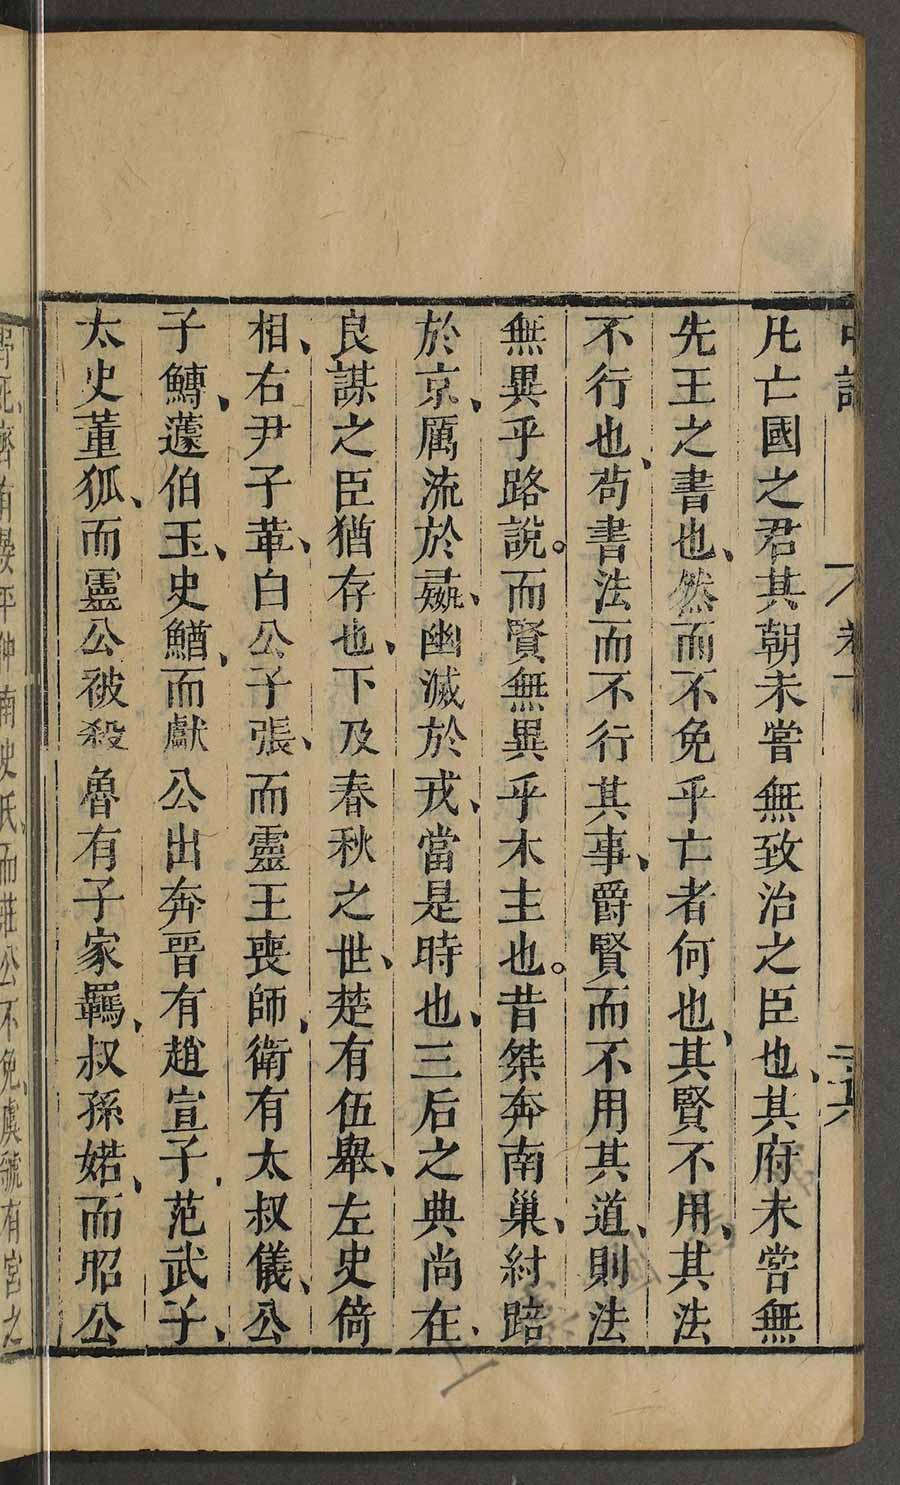 凡亡國之君其朝未嘗無致治之臣也、其府未嘗無
先王之書也、然而不免乎亡者何也、其賢不用、其法
不行也、苟書法而不行其事、爵賢而不用其道、則法
無異乎路說。而賢無異乎木主也。昔桀奔南巢、紂踣
於京、厲流於彘、幽滅於戎、當是時也、三后之典尚在、
良謀之臣猶存也、下及春秋之世、楚有伍舉、左史倚
相、右尹子革、白公子張、而靈王喪師、衛有太叔儀、公
子鱄、蘧伯玉、史鰌、而獻公出奔晉有趙宣子、范武子、
太史董狐、而靈公被殺魯有子家羈、叔孫婼、而昭公
卷下